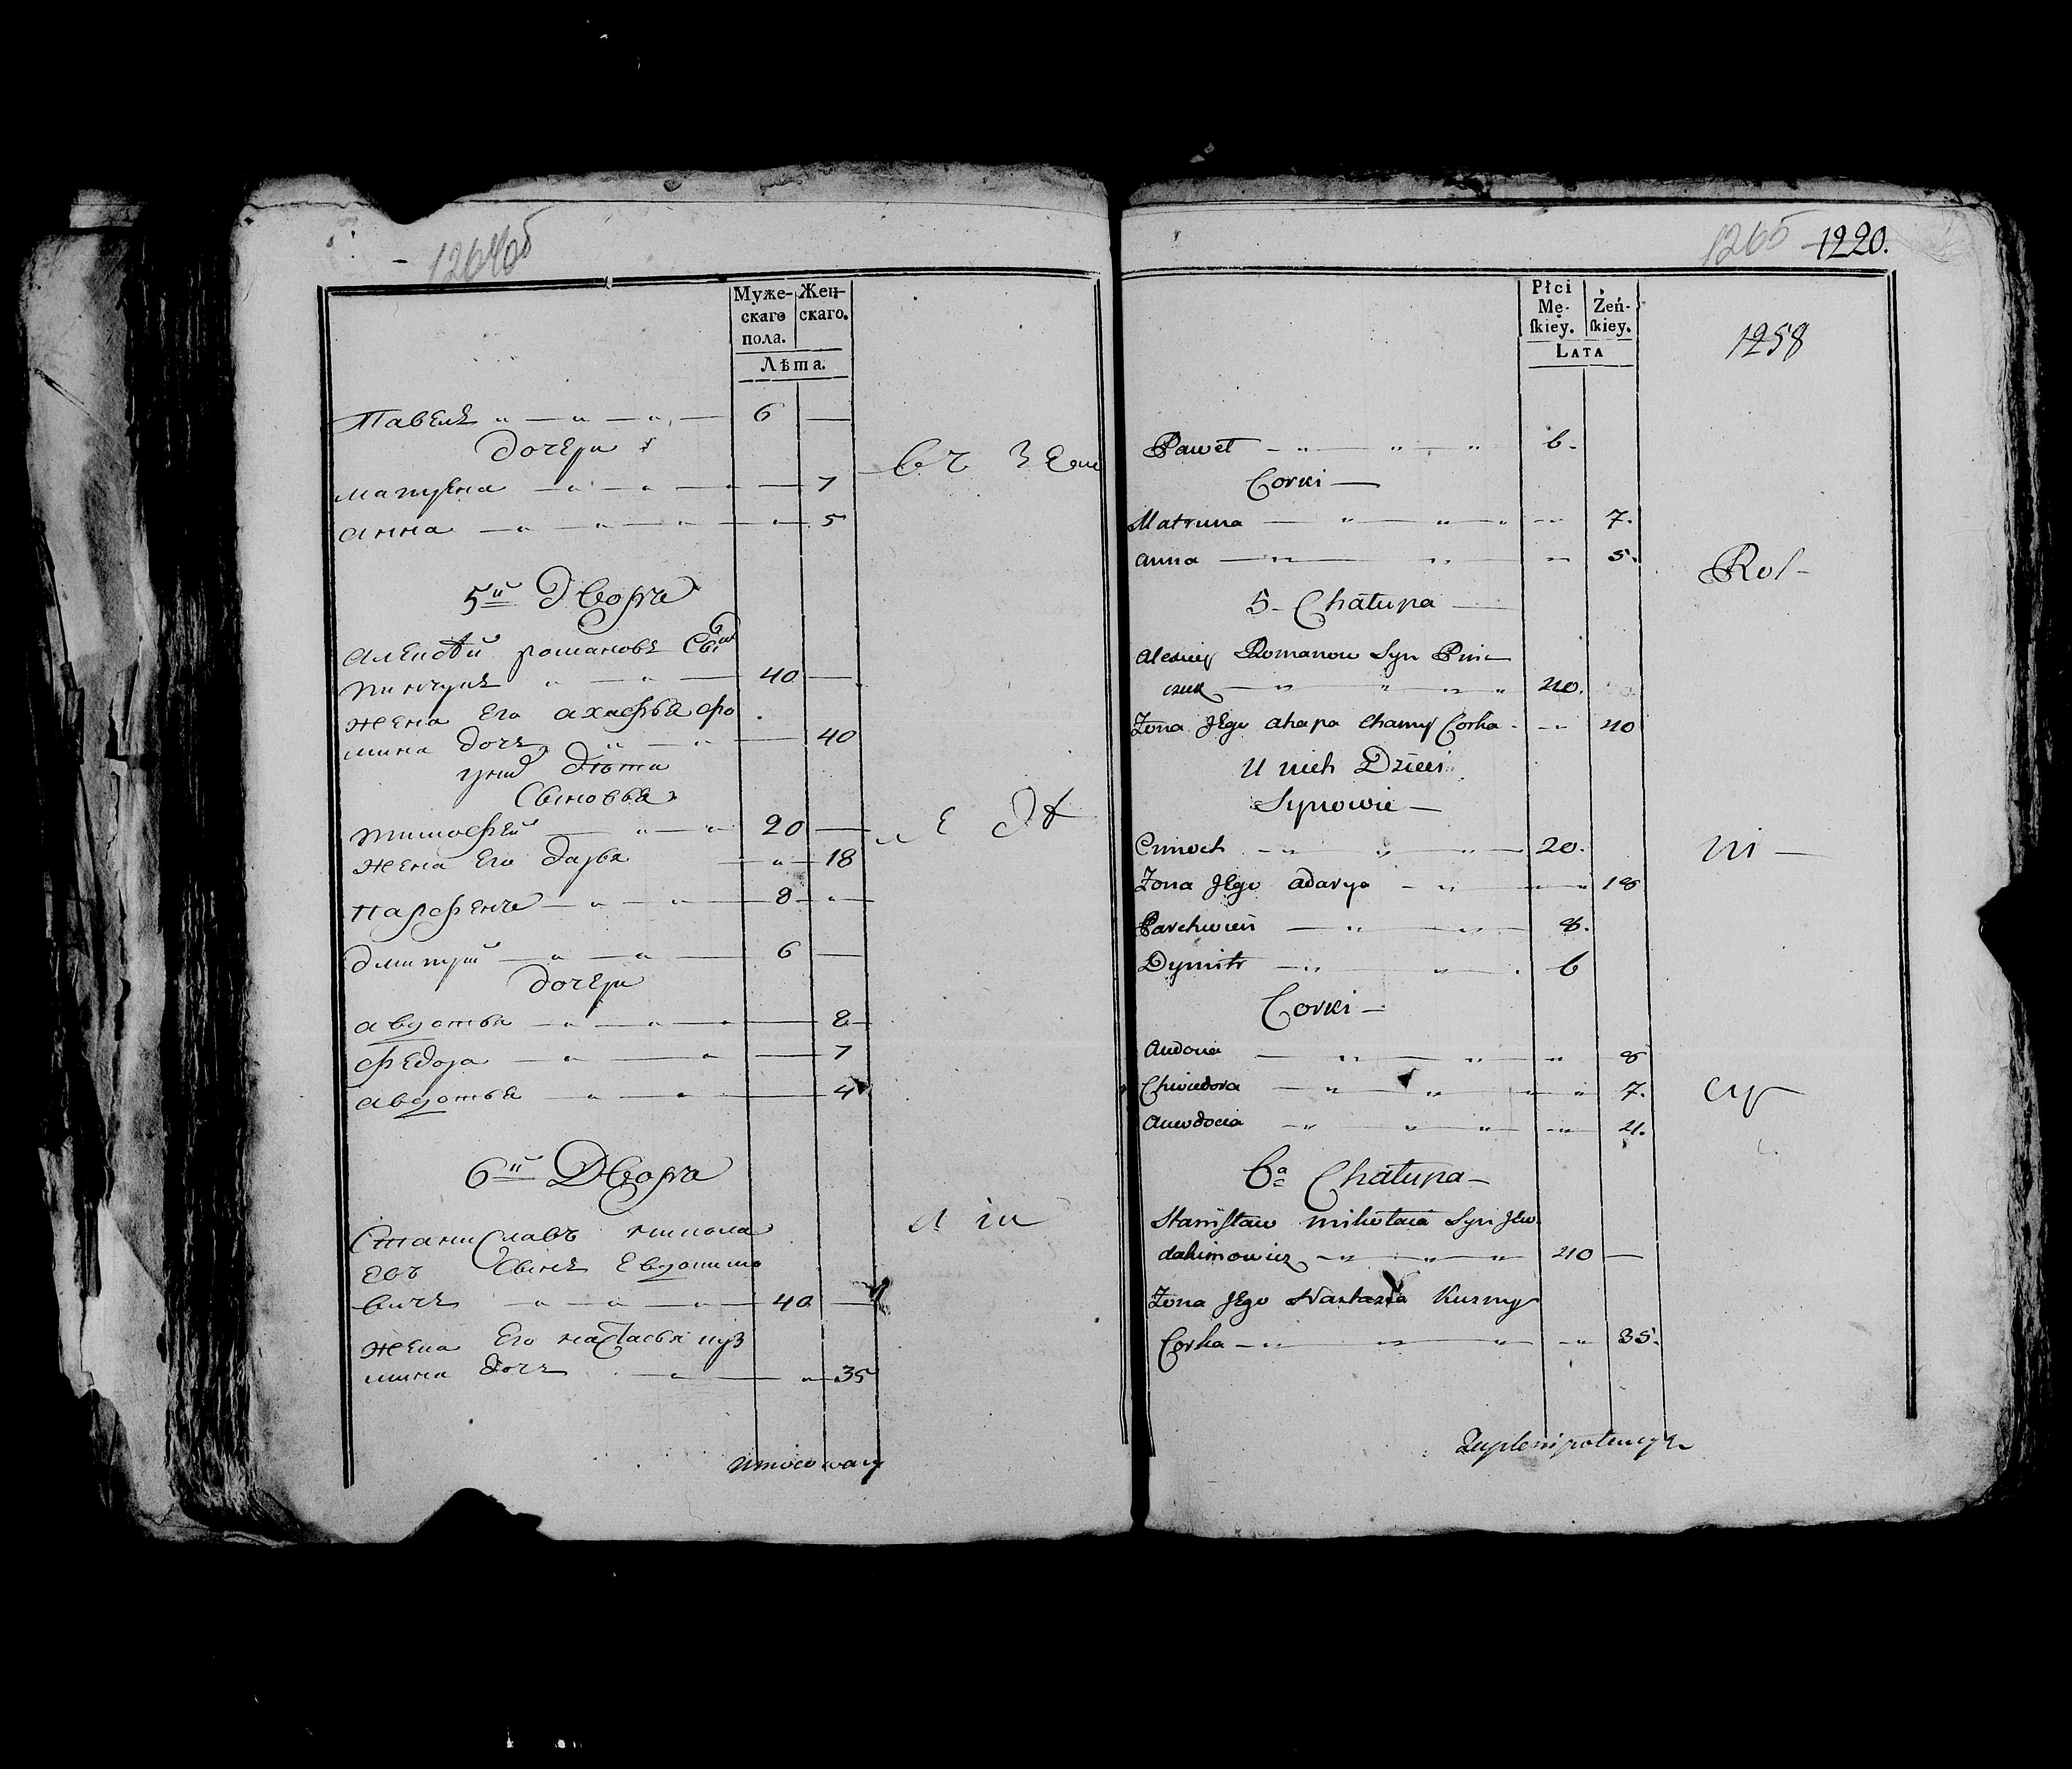 1264об
Муже-
скаго
пола.
Жен-
скаго.
Лѣта.
Павелъ 6
дочери
матрена 7
анна 5
въ зем
5й Дворъ
Алексѣй романовъ Сынъ
пинчукъ 40
жена его ахафья фо
мина дочь 40
у них дѣти
Сыновья
тимофей 20
жена его дарья 18
парфенъ 8
дмитрий 6
дочери
авдотья 8
федора 7
авдотья 4
ле дѣ
6й Дворъ
Станиславъ никола
евъ Сынъ Евдокимо
вичъ 40
жена его настасья куз
мина дочь 35
Umocowany
1265 1220.
Płci
Mę-
ſkiey.
Żeń-
ſkiey.
Lata
1258
Paweł 6.
Corki
Matruna 7.
anna 5.
Rol-
5 Chałupa
alexiey Romanow Syn Pin-
czuk 40.
Zona Jego ahapa Chamy Corka 40
U nich Dzieci
Synowie
Cimoch 20.
Zona Jego adarya 18
Parchwien 8.
Dymitr 6
ni
Corki
Audocia 8
Chwiedora 7.
Auwdocia 4.
cy
6a Chałupa
Stanisław mikołaia Syn Jew
dakimowicz 40
Zona Jego Nastazia Kuzmy
Corka 35.